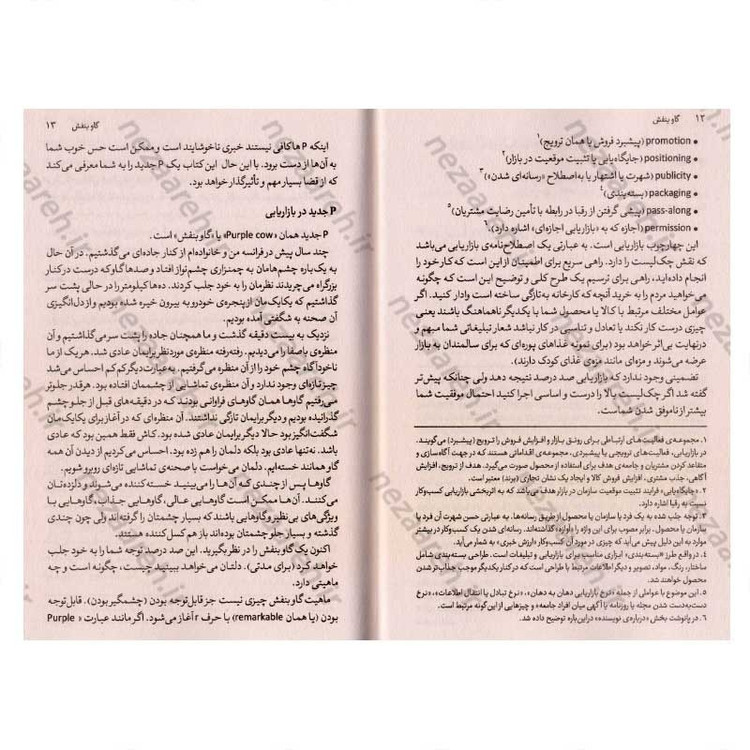 ۱۲ گاو بنفش
• promotion (پیشبرد فروش یا همان ترویج)۱
• positioning (جایگاه‌یابی یا تثبیت موقعیت در بازار)۲
• publicity (شهرت یا اشتهار یا به‌اصطلاح «رسانه‌ای شدن»)۳
• packaging (بسته‌بندی)۴
• pass-along (پیشی گرفتن از رقبا در رابطه با تأمین رضایت مشتریان)۵
• permission (اجازه که به «بازاریابی اجازه‌ای» اشاره دارد).۶
این چهارچوب بازاریابی است. به عبارتی یک اصطلاح‌نامه‌ی بازاریابی می‌باشد
که نقش چک‌لیست را دارد. راهی سریع برای اطمینان از این است که کار خود را
انجام داده‌اید، راهی برای ترسیم یک طرح کلی و توضیح این است که چگونه
می‌خواهید مردم را به خرید آنچه که کارخانه به‌تازگی ساخته است وادار کنید. اگر
عوامل مختلف مرتبط با کالا یا محصول شما با یکدیگر ناهماهنگ باشند یعنی
چیزی درست کار نکند یا تعادل و تناسبی در کار نباشد شعار تبلیغاتی شما مبهم و
درنهایت بی‌اثر خواهد بود (برای نمونه غذاهای پوره‌ای که برای سالمندان به بازار
عرضه می‌شوند و مزه‌ای مانند مزه‌ی غذای کودک دارند).
تضمینی وجود ندارد که بازاریابی صد درصد نتیجه دهد ولی چنانکه پیش‌تر
گفته شد اگر چک‌لیست بالا را درست و اساسی اجرا کنید احتمال موفقیت شما
بیشتر از ناموفق شدن شماست.
۱. مجموعه‌ی فعالیت‌های ارتباطی برای رونق بازار و افزایش فروش را ترویج (پیشبرد) می‌گویند.
در بازاریابی، فعالیت‌های ترویجی یا پیشبردی، مجموعه‌ی اقداماتی هستند که در جهت آگاه‌سازی و
متقاعد کردن مشتریان و جامعه‌ی هدف برای استفاده از محصول صورت می‌گیرد. هدف از ترویج، افزایش
آگاهی، جذب مشتری، افزایش فروش کالا و ایجاد یک نشان تجاری (برند) معتبر است.
۲. «جایگاه‌یابی» فرایند تثبیت موقعیت سازمان در بازار هدف می‌باشد که به اثربخشی بازاریابی کسب‌وکار
نسبت به رقبا اشاره دارد.
۳. توجه جلب شده به یک فرد یا سازمان یا محصول از طریق رسانه‌ها. به عبارتی حسن شهرت آن فرد یا
سازمان یا محصول. برابر مصوب برای این واژه را «آوازه» گذاشته‌اند. رسانه‌ای شدن یک کسب‌وکار در بیشتر
موارد به این دلیل پیش می‌آید که چیزی در مورد آن کسب‌وکار «ارزش خبری» به شمار می‌آید.
۴. در واقع طرز «بسته‌بندی» ابزاری مناسب برای بازاریابی و تبلیغات است. طراحی بسته‌بندی شامل
ساختار، رنگ، مواد، تصویر و دیگر اطلاعات مرتبط با طراحی است که در کنار یکدیگر موجب جذاب‌تر شدن
محصول خواهند شد.
۵. این موضوع با عواملی از جمله «نرخ بازاریابی دهان به دهان»، «نرخ تبادل یا انتقال اطلاعات»، «نرخ
دست‌به‌دست شدن مجله یا روزنامه یا آگهی میان افراد جامعه» و چیزهایی از این‌گونه مرتبط است.
۶. در پانوشت بخش «درباره‌ی نویسنده» در این‌باره توضیح داده شد.
گاو بنفش ۱۳
اینکه Pها کافی نیستند خبری ناخوشایند است و ممکن است حس خوب شما
به آن‌ها از دست برود. با این حال این کتاب یک P جدید را به شما معرفی می‌کند
که از قضا بسیار مهم و تأثیرگذار خواهد بود.
P جدید در بازاریابی
P جدید همان «Purple cow» یا «گاو بنفش» است.
چند سال پیش در فرانسه من و خانواده‌ام از کنار جاده‌ای می‌گذشتیم. در آن حال
به یک‌باره چشم‌هامان به چمنزاری چشم‌نواز افتاد و صدها گاو که درست در کنار
بزرگراه می‌چریدند نظرمان را به خود جلب کردند. ده‌ها کیلومتر را در حالی پشت سر
گذاشتیم که یکایک‌مان از پنجره‌ی خودرو به بیرون خیره شده بودیم و از دل‌انگیزی
آن صحنه به شگفتی آمده بودیم.
نزدیک به بیست دقیقه گذشت و ما همچنان جاده را پشت سر می‌گذاشتیم و آن
منظره‌ی باصفا را می‌دیدیم. رفته‌رفته منظره‌ی مورد نظر برایمان عادی شد. هر یک از ما
ناخودآگاه چشم خود را از آن منظره می‌گرفتیم. به‌عبارت‌دیگر کم‌کم احساس می‌شد
چیز تازه‌ای وجود ندارد و آن منظره‌ی تماشایی از چشممان افتاده بود. هرقدر جلوتر
می‌رفتیم گاوها همان گاوهای فراوانی بودند که در دقیقه‌های قبل از جلو چشم
گذرانیده بودیم و دیگر برایمان تازگی نداشتند. آن منظره‌ای که در آغاز برای یکایکمان
شگفت‌انگیز بود حالا دیگر برایمان عادی شده بود. کاش فقط همین بود که عادی
باشد. نه‌تنها عادی بود بلکه دلمان را هم زده بود. احساس می‌کردیم از دیدن آن همه
گاو همانند خسته‌ایم. دلمان می‌خواست با صحنه‌ی تماشایی تازه‌ای روبرو شویم.
گاوها پس از چندی که آن‌ها را می‌بینید خسته‌کننده می‌شوند و دلزده‌تان
می‌کنند. آن‌ها ممکن است گاوهایی عالی، گاوهایی جذاب، گاوهایی با
ویژگی‌های بی‌نظیر و گاوهایی باشند که بسیار چشمتان را گرفته‌اند ولی چون چندی
گذشته و بسیار جلو چشمتان بوده‌اند باز هم کسل کننده هستند.
اکنون یک گاو بنفش را در نظر بگیرید. این صد درصد توجه شما را به خود جلب
خواهد کرد (برای مدتی). دلتان می‌خواهد ببینید چیست، چگونه است و چه
ماهیتی دارد.
ماهیت گاو بنفش چیزی نیست جز قابل‌توجه بودن (چشمگیر بودن). قابل‌توجه
بودن (یا همان remarkable) با حرف r آغاز می‌شود. اگر مانند عبارت « Purple
nezaareh.ir